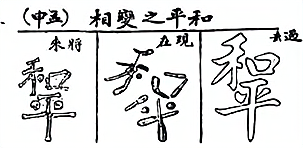 和平之變相（五中）
過去
和平
現在
和平
將來
和平